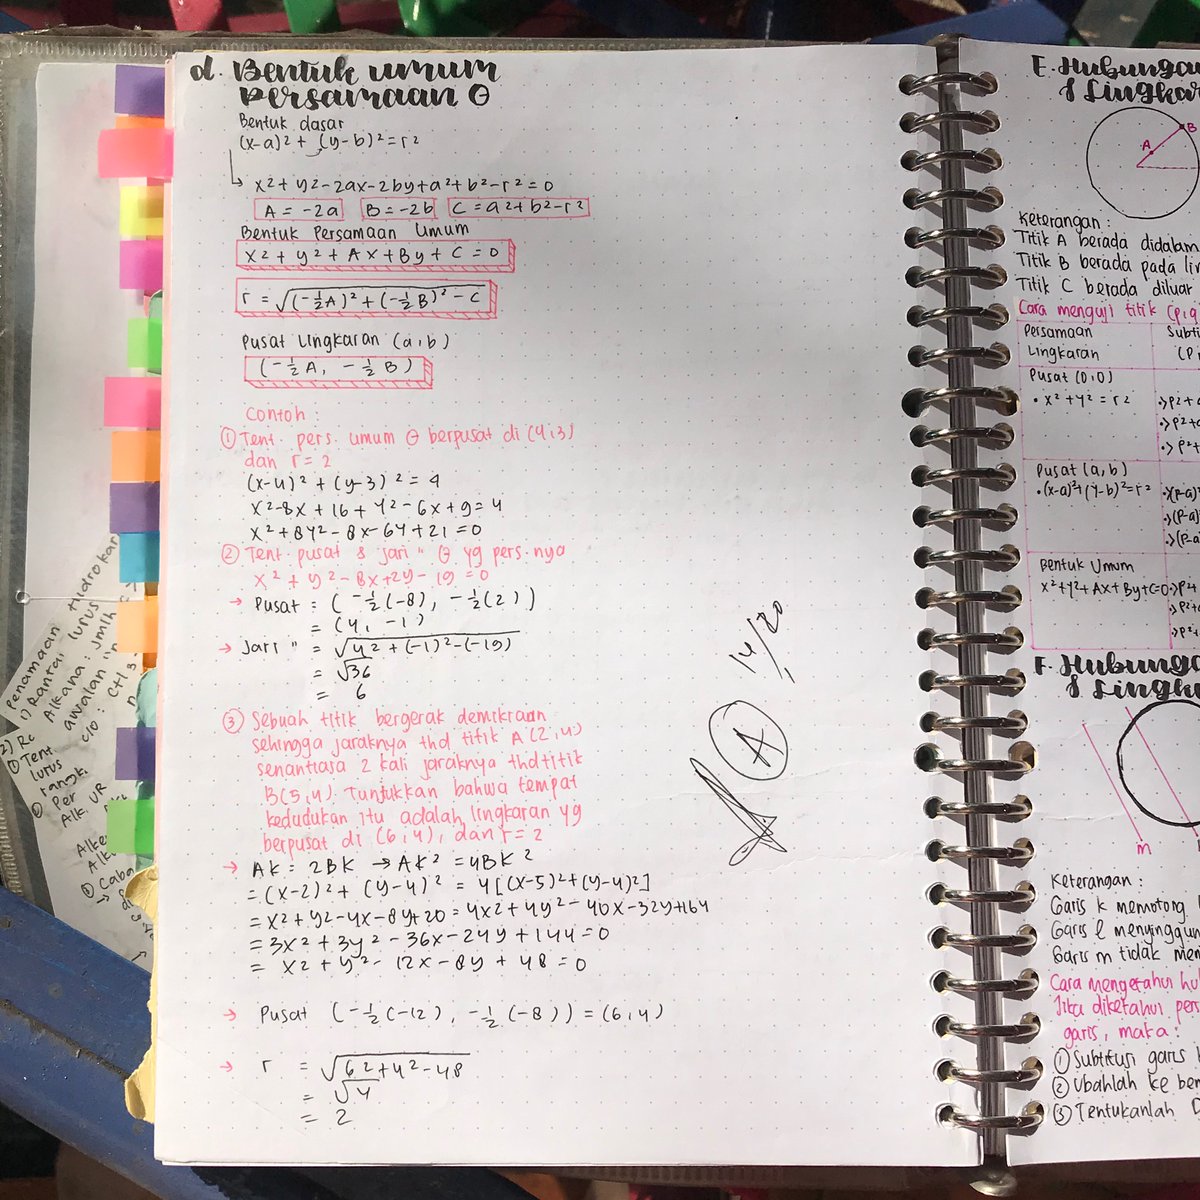 d. Bentuk umum
persamaan ⊖
Bentuk dasar
(x-a)² + (y-b)² = r²
↳ x² + y² - 2ax - 2by + a² + b² - r² = 0
A = -2a B = -2b C = a² + b² - r²
Bentuk Persamaan Umum
x² + y² + Ax + By + C = 0
r = √(-½A)² + (-½B)² - C
Pusat Lingkaran (a,b)
(-½A, -½B)
Contoh :
① Tent. pers. umum ⊖ berpusat di (4,3)
dan r = 2
(x-4)² + (y-3)² = 4
x² - 8x + 16 + y² - 6x + 9 = 4
x² + 8y² - 8x - 6y + 21 = 0
② Tent. pusat & jari " ⊖ yg pers.nya
x² + y² - 8x + 2y - 19 = 0
→ Pusat = (-½(-8), -½(2))
= (4, -1)
→ Jari " = √4² + (-1)² - (-19)
= √36
= 6
③ Sebuah titik bergerak demikraan
sehingga jaraknya thd titik A(2,4)
senantiasa 2 kali jaraknya thd titik
B(5,4). Tunjukkan bahwa tempat
kedudukan itu adalah lingkaran yg
berpusat di (6,4), dan r = 2
→ AK = 2BK → AK² = 4BK²
= (x-2)² + (y-4)² = 4[(x-5)² + (y-4)²]
= x² + y² - 4x - 8y + 20 = 4x² + 4y² - 40x - 32y + 164
= 3x² + 3y² - 36x - 24y + 144 = 0
= x² + y² - 12x - 8y + 48 = 0
→ Pusat (-½(-12), -½(-8)) = (6,4)
→ r = √6² + 4² - 48
= √4
= 2
14/20
A
E. Hubungan
& Lingkar
A
B
Keterangan :
Titik A berada didalam
Titik B berada pada lin
Titik C berada diluar
Cara menguji titik (p,q
Persamaan
Lingkaran
Subti
(p,
Pusat (0,0)
• x² + y² = r²
Pusat (a,b)
• (x-a)² + (y-b)² = r²
Bentuk Umum
x² + y² + Ax + By + C = 0
F. Hubunga
& Lingka
m
Keterangan :
Garis k memotong
Garis l menyinggun
Garis m tidak mem
Cara mengetahui hu
Jika diketahui pers
garis, maka :
① Subtitusi garis
② Ubahlah ke ben
③ Tentukanlah D
Penamaan hidrokar
1) Rantai lurus
Alkana : jmlh
awalan